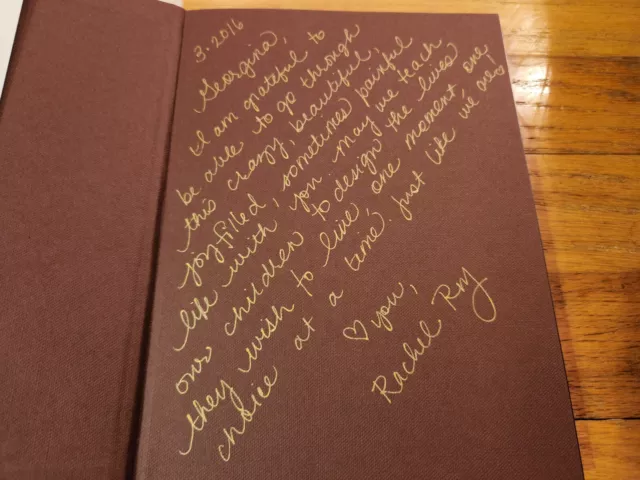 3.2016
Georgina,
I am grateful to
be able to go through
this crazy, beautiful,
joy filled, sometimes painful
life with you. may we teach
our children to design the lives
they wish to live one moment, one
choice at a time, just like we are
♡ you,
Rachel Roy